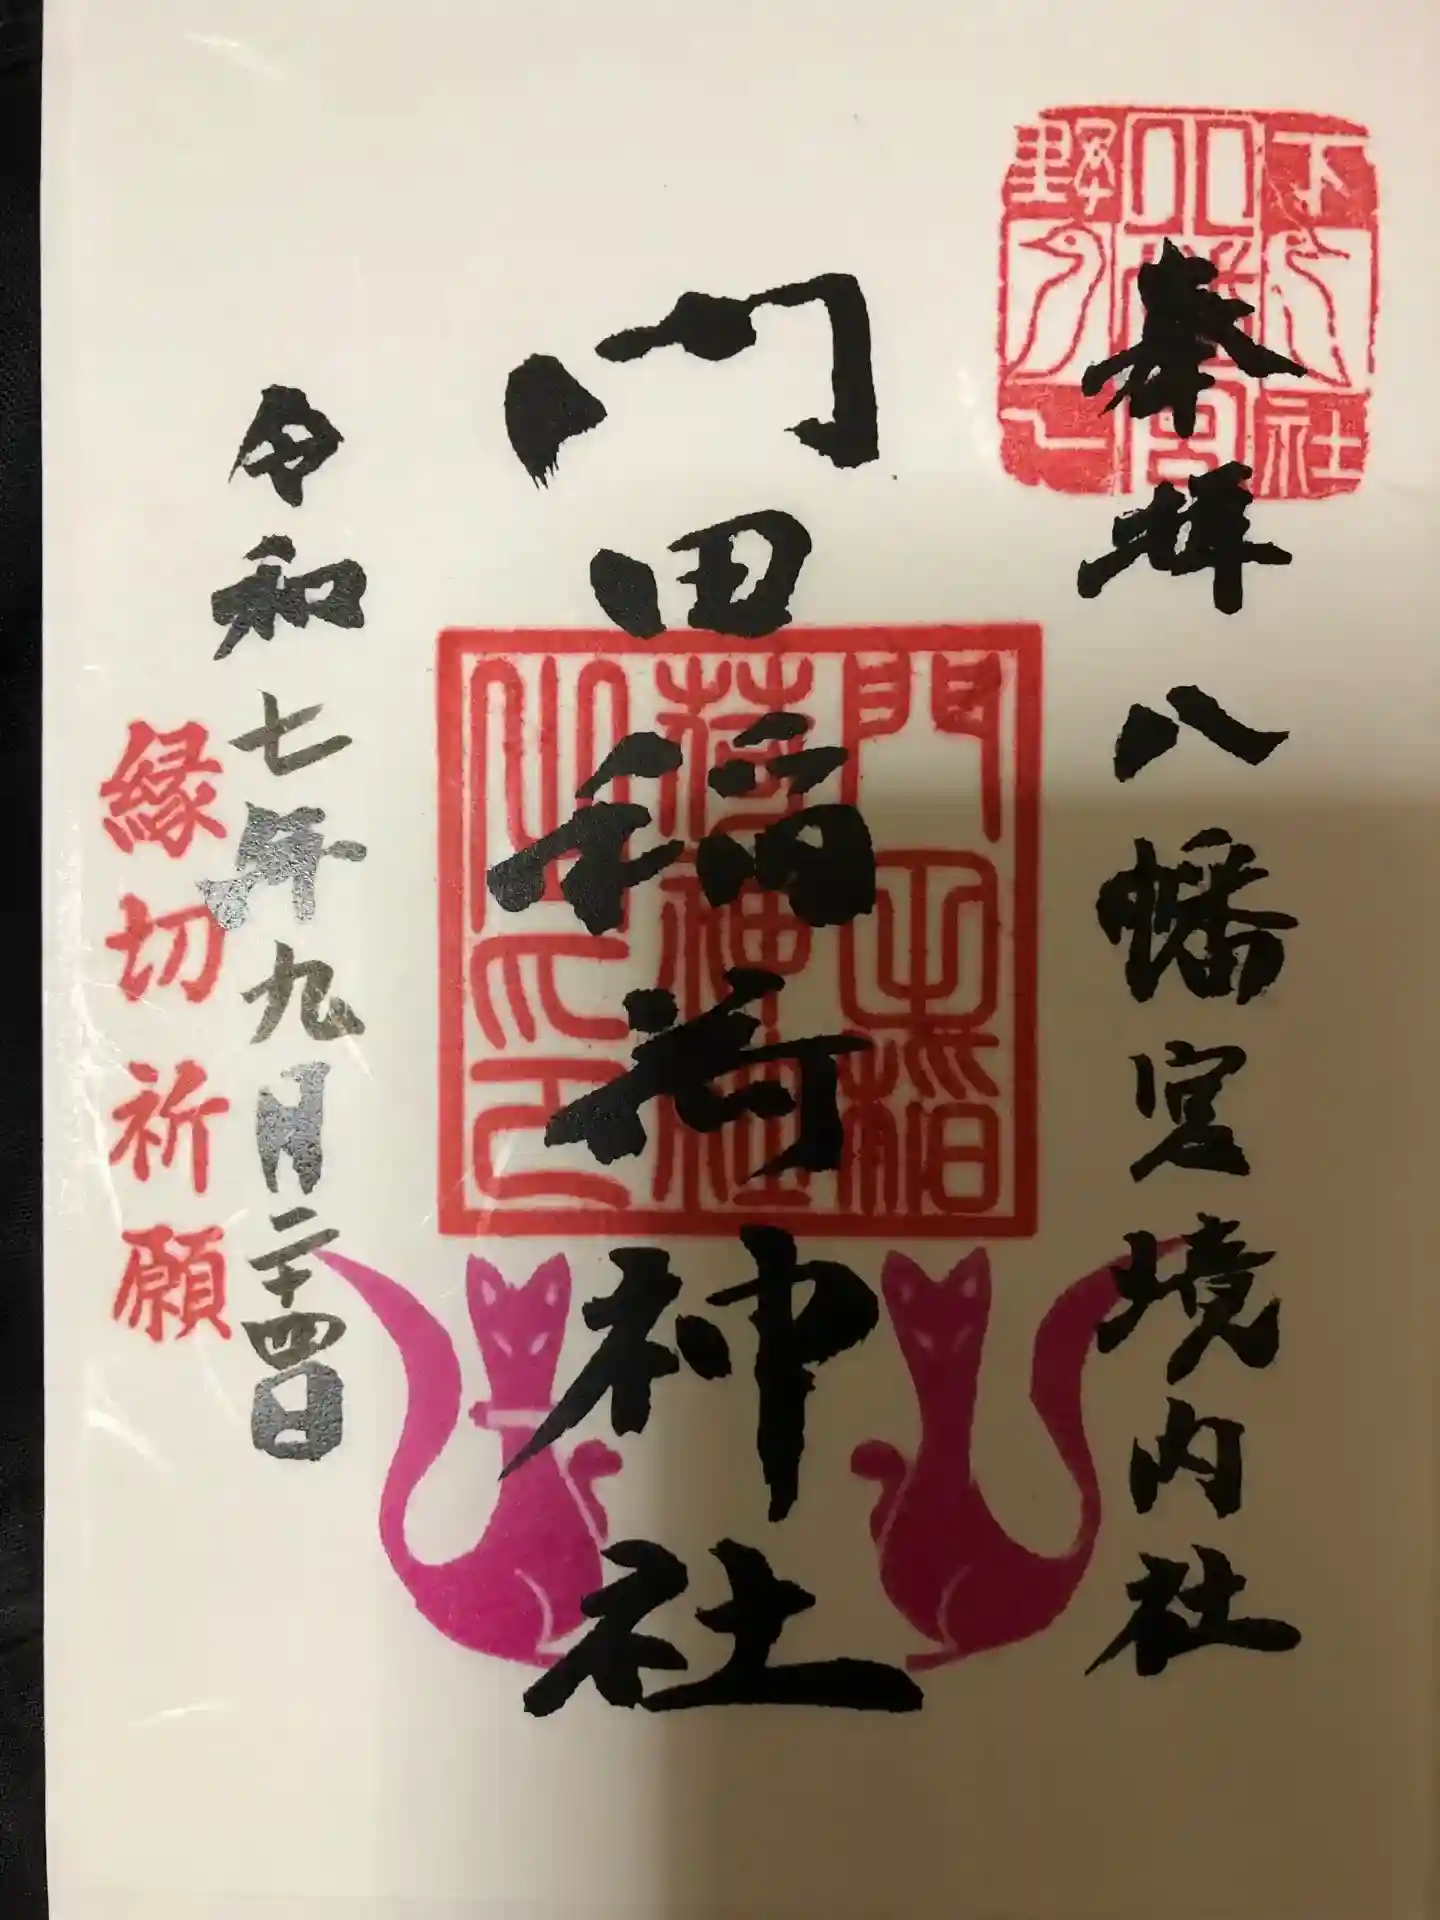 奉拝
八幡宮境内社
下野
一社
八幡宮
門田稲荷神社
門田稲
荷神社
之印
令和七年九月二十四日
縁切祈願